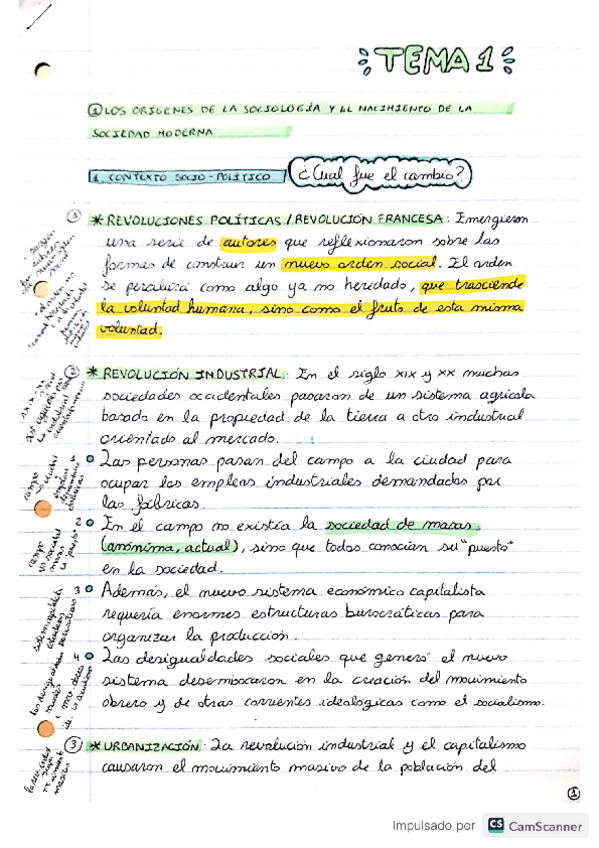 TEMA 1
① LOS ORÍGENES DE LA SOCIOLOGÍA Y EL NACIMIENTO DE LA
SOCIEDAD MODERNA
1. CONTEXTO SOCIO-POLÍTICO ¿Cual fue el cambio?
① * REVOLUCIONES POLÍTICAS / REVOLUCIÓN FRANCESA: Emergieron
una serie de autores que reflexionaron sobre las
formas de construir un nuevo orden social. El orden
se percibirá como algo ya no heredado, que trasciende
la voluntad humana, sino como el fruto de esta misma
voluntad.
② * REVOLUCIÓN INDUSTRIAL: En el siglo XIX y XX muchas
sociedades occidentales pasaron de un sistema agrícola
basado en la propiedad de la tierra a otro industrial
orientado al mercado.
Las personas pasan del campo a la ciudad para
ocupar los empleos industriales demandados por
las fábricas.
2 En el campo no existía la sociedad de masas
(anónima, actual), sino que todos conocían su "puesto"
en la sociedad.
3 Además, el nuevo sistema económico capitalista
requería enormes estructuras burocráticas para
organizar la producción.
4 Las desigualdades sociales que generó el nuevo
sistema desembocaron en la creación del movimiento
obrero y de otras corrientes ideológicas como el socialismo.
③ * URBANIZACIÓN: La revolución industrial y el capitalismo
causaron el movimiento masivo de la población del
①
Impulsado por CS CamScanner